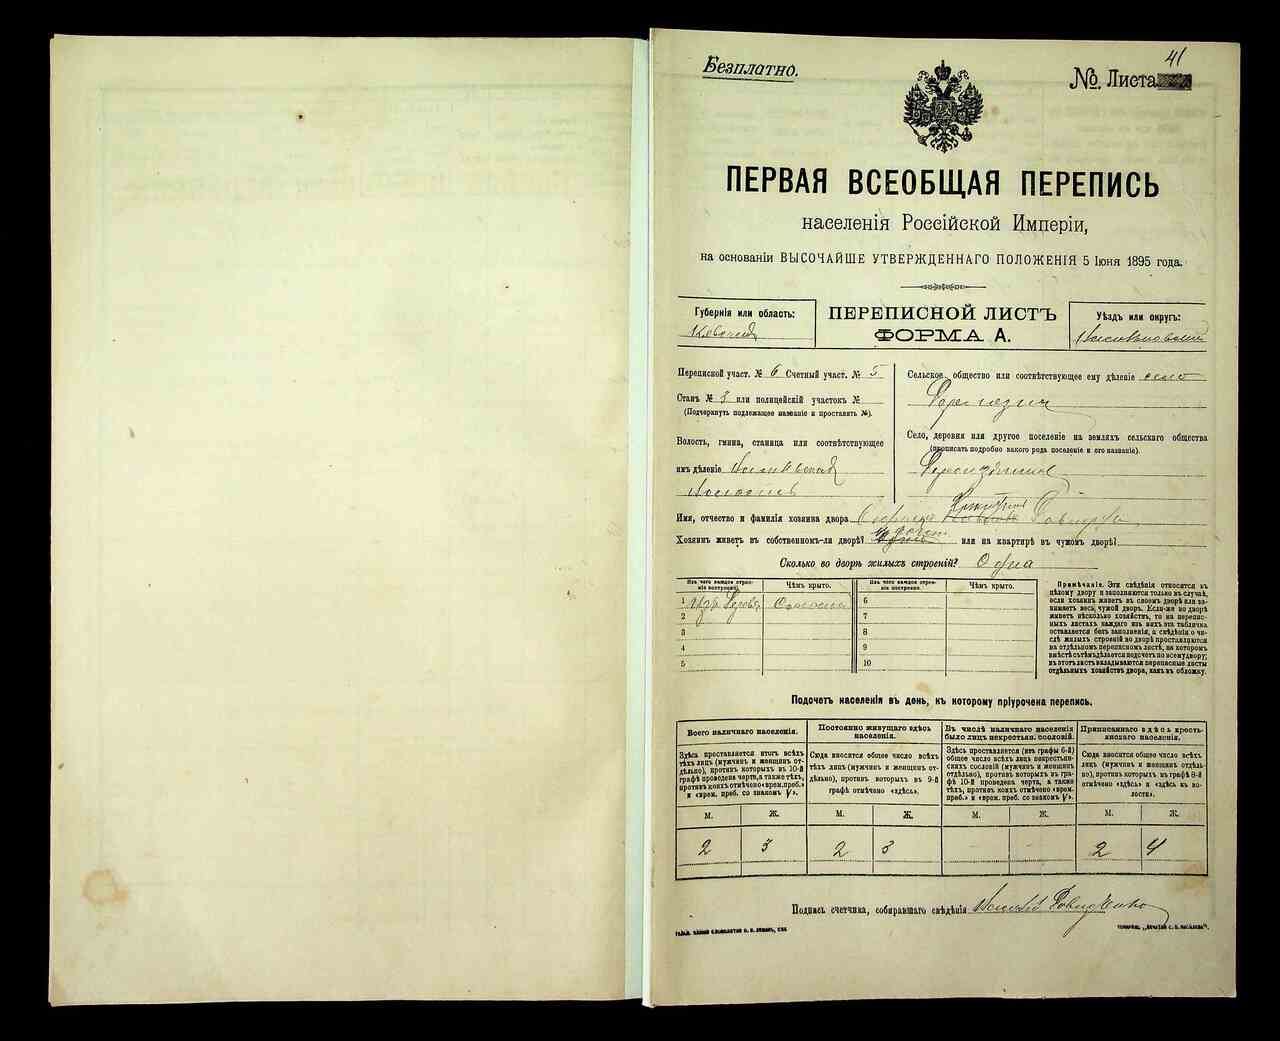 Безплатно.
41
№ Листа
ПЕРВАЯ ВСЕОБЩАЯ ПЕРЕПИСЬ
населенія Россійской Имперіи,
на основаніи ВЫСОЧАЙШЕ УТВЕРЖДЕННАГО ПОЛОЖЕНІЯ 5 Іюня 1895 года.
Губернія или область:
ПЕРЕПИСНОЙ ЛИСТЪ
ФОРМА А.
Уѣздъ или округъ:
Переписной участ. № 6 Счетный участ. № 5
Станъ № 3 или полицейскій участокъ №
(Подчеркнуть подлежащее названіе и проставить №).
Волость, гмина, станица или соотвѣтствующее
имъ дѣленіе
Сельское общество или соотвѣтствующее ему дѣленіе село
Село, деревня или другое поселеніе на земляхъ сельскаго общества
(прописать подробно какого рода поселеніе и его названіе).
Имя, отчество и фамилія хозяина двора
Хозяинъ живетъ въ собственномъ-ли дворѣ? или на квартирѣ въ чужомъ дворѣ?
Сколько во дворѣ жилыхъ строеній? Одна
Изъ чего каждое строеніе построено.
Чѣмъ крыто.
Изъ чего каждое строеніе построено.
Чѣмъ крыто.
1
2
3
4
5
6
7
8
9
10
Примѣчаніе. Эти свѣдѣнія относятся къ
цѣлому двору и заполняются только въ случаѣ,
если хозяинъ живетъ въ своемъ дворѣ или занимаетъ
весь чужой дворъ. Если-же во дворѣ
живетъ нѣсколько хозяйствъ, то на переписныхъ
листахъ каждаго изъ нихъ эта табличка
оставляется безъ заполненія, а свѣдѣнія о числѣ
жилыхъ строеній во дворѣ проставляются
на отдѣльномъ переписномъ листѣ, на которомъ
вмѣстѣ съ тѣмъ дѣлается подсчетъ по всему двору;
въ этотъ листъ вкладываются переписные листы
отдѣльныхъ хозяйствъ двора, какъ въ обложку.
Подсчетъ населенія въ день, къ которому пріурочена перепись.
Всего наличнаго населенія.
Здѣсь проставляется итогъ всѣхъ
тѣхъ лицъ (мужчинъ и женщинъ отдѣльно),
противъ которыхъ въ 10-й
графѣ проведена черта, а также тѣхъ,
противъ коихъ отмѣчено «врем. преб.»
и «врем. преб. со знакомъ V».
М. Ж.
2 3
Постоянно живущаго здѣсь
населенія.
Сюда вносится общее число всѣхъ
тѣхъ лицъ (мужчинъ и женщинъ отдѣльно),
противъ которыхъ въ 9-й
графѣ отмѣчено «здѣсь».
М. Ж.
2 3
Въ числѣ наличнаго населенія
было лицъ некрестьян. сословій.
Здѣсь проставляется (изъ графы 6-й)
общее число всѣхъ лицъ некрестьянскихъ
сословій (мужчинъ и женщинъ
отдѣльно), противъ которыхъ въ графѣ
10-й проведена черта, а также
тѣхъ, противъ коихъ отмѣчено «врем.
преб.» и «врем. преб. со знакомъ V».
М. Ж.
Приписаннаго здѣсь крестьянскаго
населенія.
Сюда вносится общее число всѣхъ
лицъ (мужчинъ и женщинъ отдѣльно),
противъ которыхъ въ графѣ 8-й
отмѣчено «здѣсь» и «здѣсь въ волости».
М. Ж.
2 4
Подпись счетчика, собиравшаго свѣдѣнія